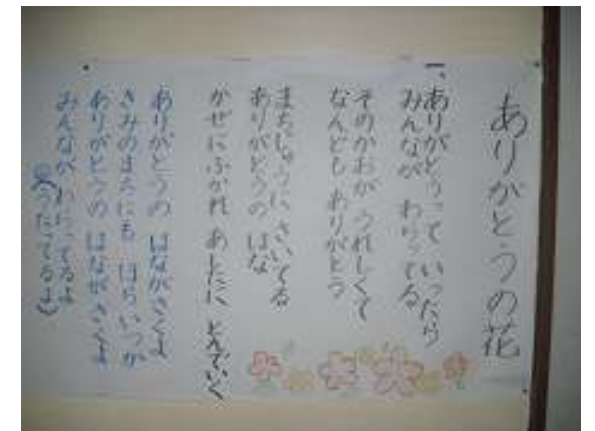 ありがとうの花
一、ありがとうって いったら
みんなが わらってる
そのかおが うれしくて
なんども ありがとう
まちじゅうに さいてる
ありがとうの はな
かぜにふかれ あしたに とんでいく
ありがとうの はながさくよ
きみのまちにも ほら いつか
ありがとうの はながさくよ
みんなが わらってるよ
(うたってるよ)